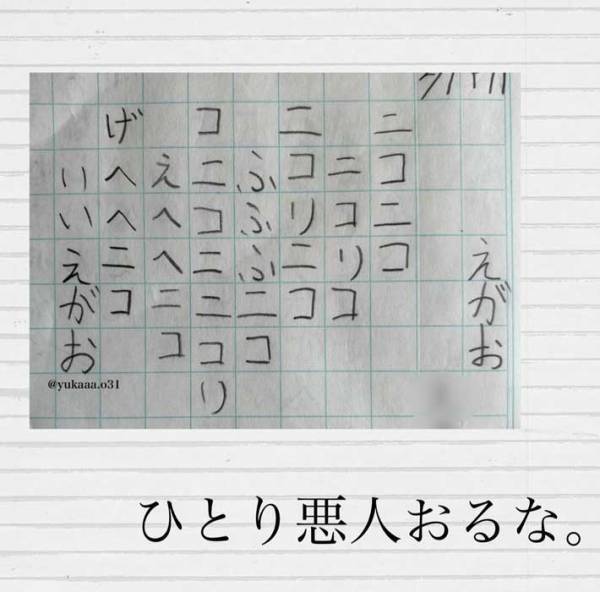 えがお
ニコニコ
ニコリコ
ニコリニコ
ふふふニコ
コニコニニコリ
えへへニコ
げへへニコ
いいえがお
@yukaaa.o31
ひとり悪人おるな。